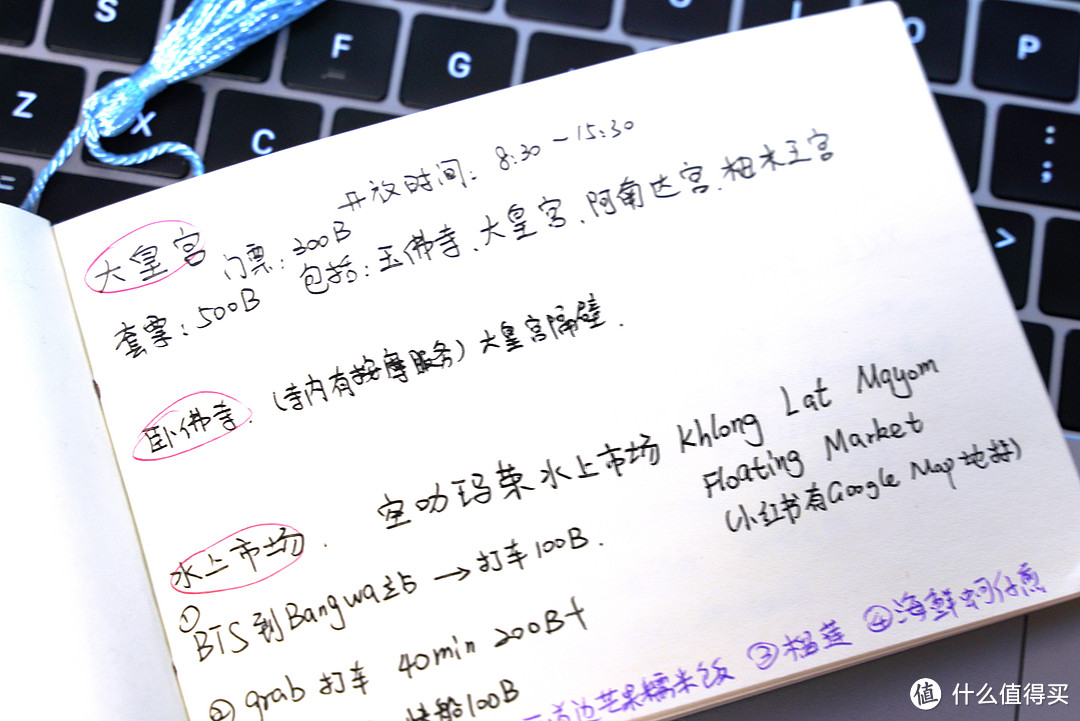 开放时间: 8:30 — 15:30
大皇宫 门票: 300B 包括: 玉佛寺、大皇宫、阿南达宫、柚木王宫
套票: 500B
卧佛寺. (寺内有按摩服务) 大皇宫隔壁.
空叻玛荣水上市场 Khlong Lat Mayom
Floating Market
(小红书有Google Map地址)
水上市场.
① BTS到Bangwa站 → 打车100B.
② grab 打车 40min 200B+
快船100B
芒果糯米饭 ③榴莲 ④海鲜蚵仔煎
Z X C F G O P
值 什么值得买